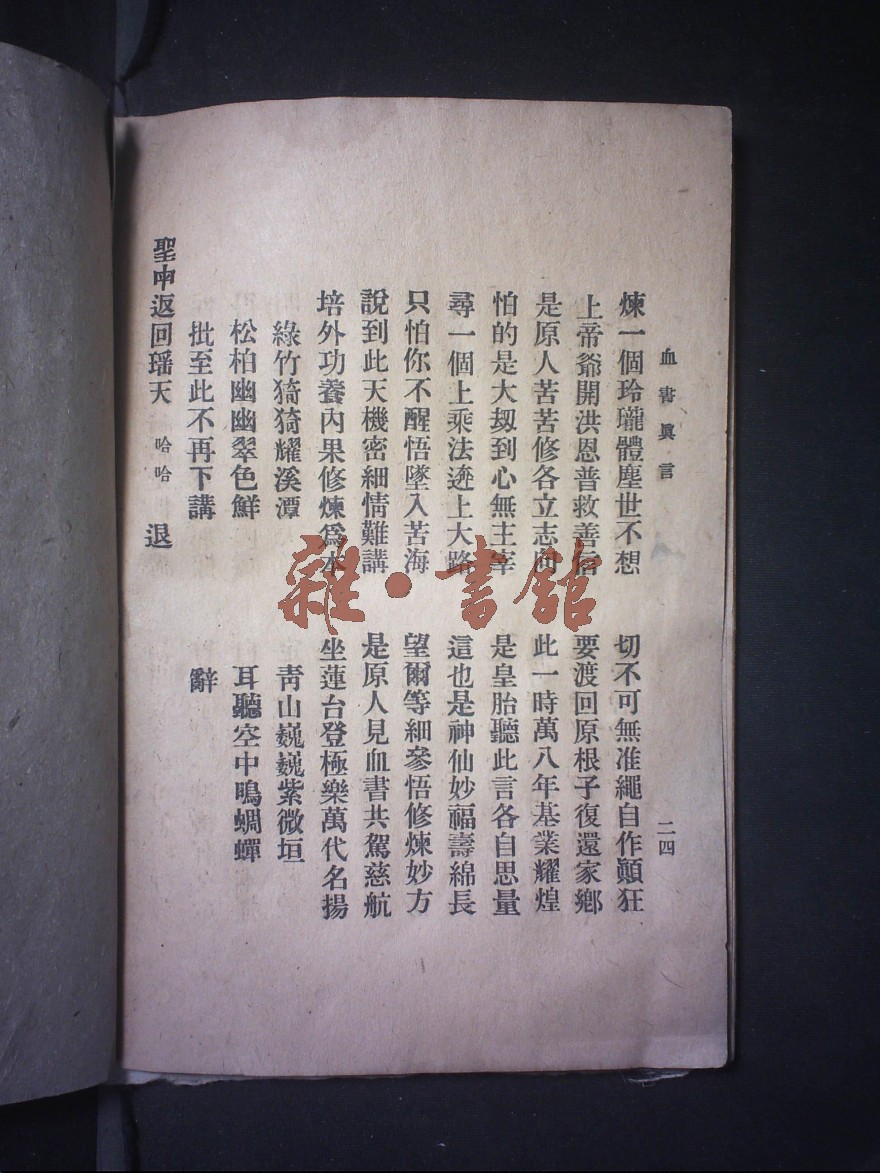 血書眞言 二四
煉一個玲瓏體塵世不想 切不可無准繩自作顚狂
上帝爺開洪恩普救善信 要渡回原根子復還家鄕
是原人苦苦修各立志向 此一時萬八年基業耀煌
怕的是大刼到心無主宰 是皇胎聽此言各自思量
尋一個上乘法逩上大路 這也是神仙妙福壽綿長
只怕你不醒悟墜入苦海 望爾等細參悟修煉妙方
說到此天機密細情難講 是原人見血書共駕慈航
培外功養內果修煉爲本 坐蓮台登極樂萬代名揚
綠竹猗猗耀溪潭 靑山巍巍紫微垣
松柏幽幽翠色鮮 耳聽空中鳴蜩蟬
批至此不再下講 辭
聖中返回瑶天 哈哈 退
雜·書館